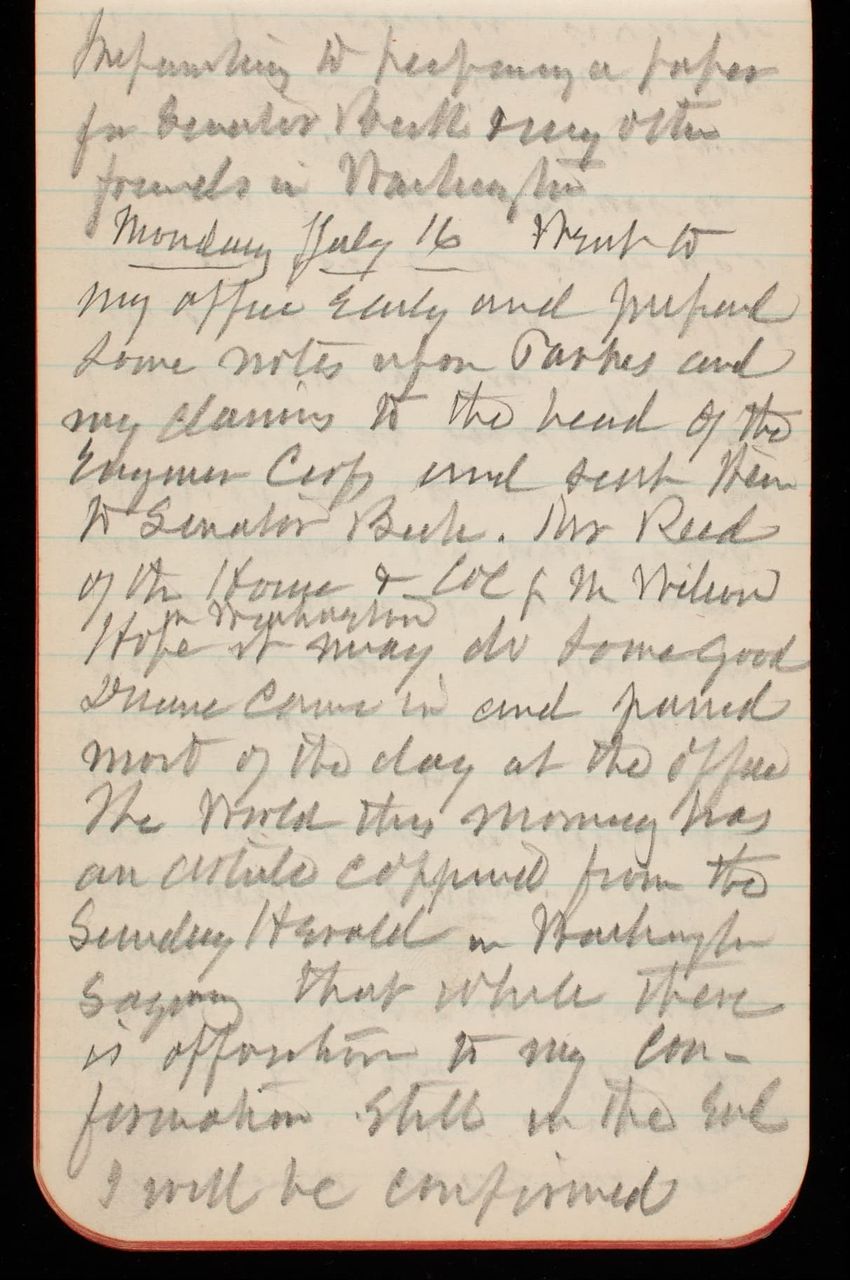 to preparing a paper
for Senator Beck & my other
friends in Washington
Monday July 16 Went to
my office early and prepared
some notes upon Parkes and
my claims to the head of the
Engineer Corps and sent them
to Senator Beck. Mr Reed
of the House & Col J M Wilson
in Washington
Hope it may do some good
Duane came in and passed
most of the day at the office
The World this morning has
an article coppied from the
Sunday Herald in Washington
saying that while there
is opposition to my con-
firmation still in the End
I will be confirmed